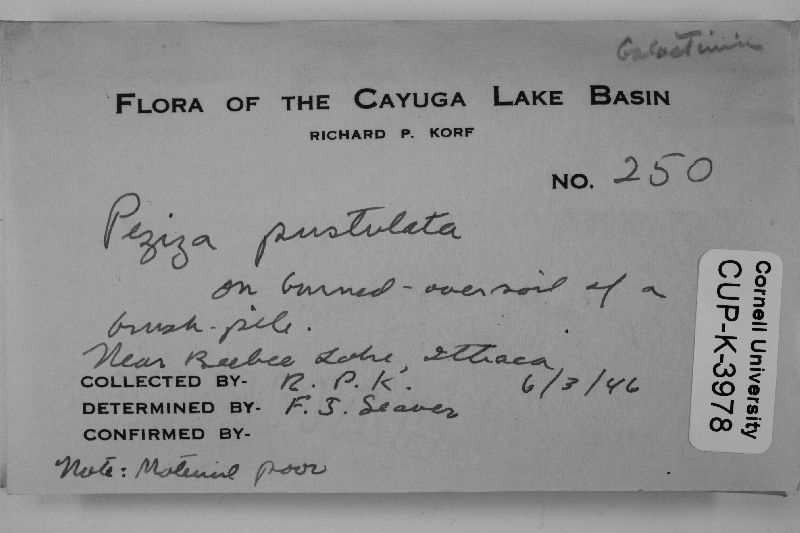 Galactinia
FLORA OF THE CAYUGA LAKE BASIN
RICHARD P. KORF
NO. 250
Peziza pustulata
on burned-over soil of a
brush-pile.
Near Beebee Lake, Ithaca
COLLECTED BY- R. P. K. 6/3/46
DETERMINED BY- F. J. Seaver
CONFIRMED BY-
Note: Material poor
Cornell University
CUP-K-3978